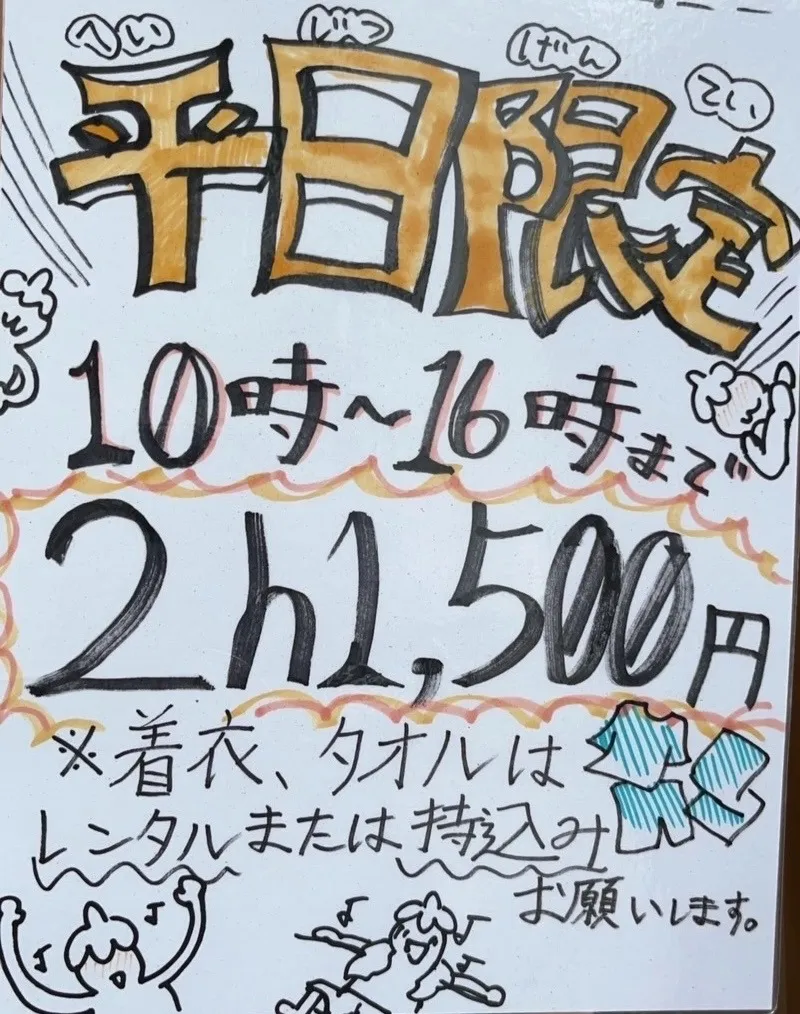 へい じつ げん てい
平日限定
10時~16時まで
2h1,500円
※着衣、タオルは
レンタルまたは持込み
お願いします。